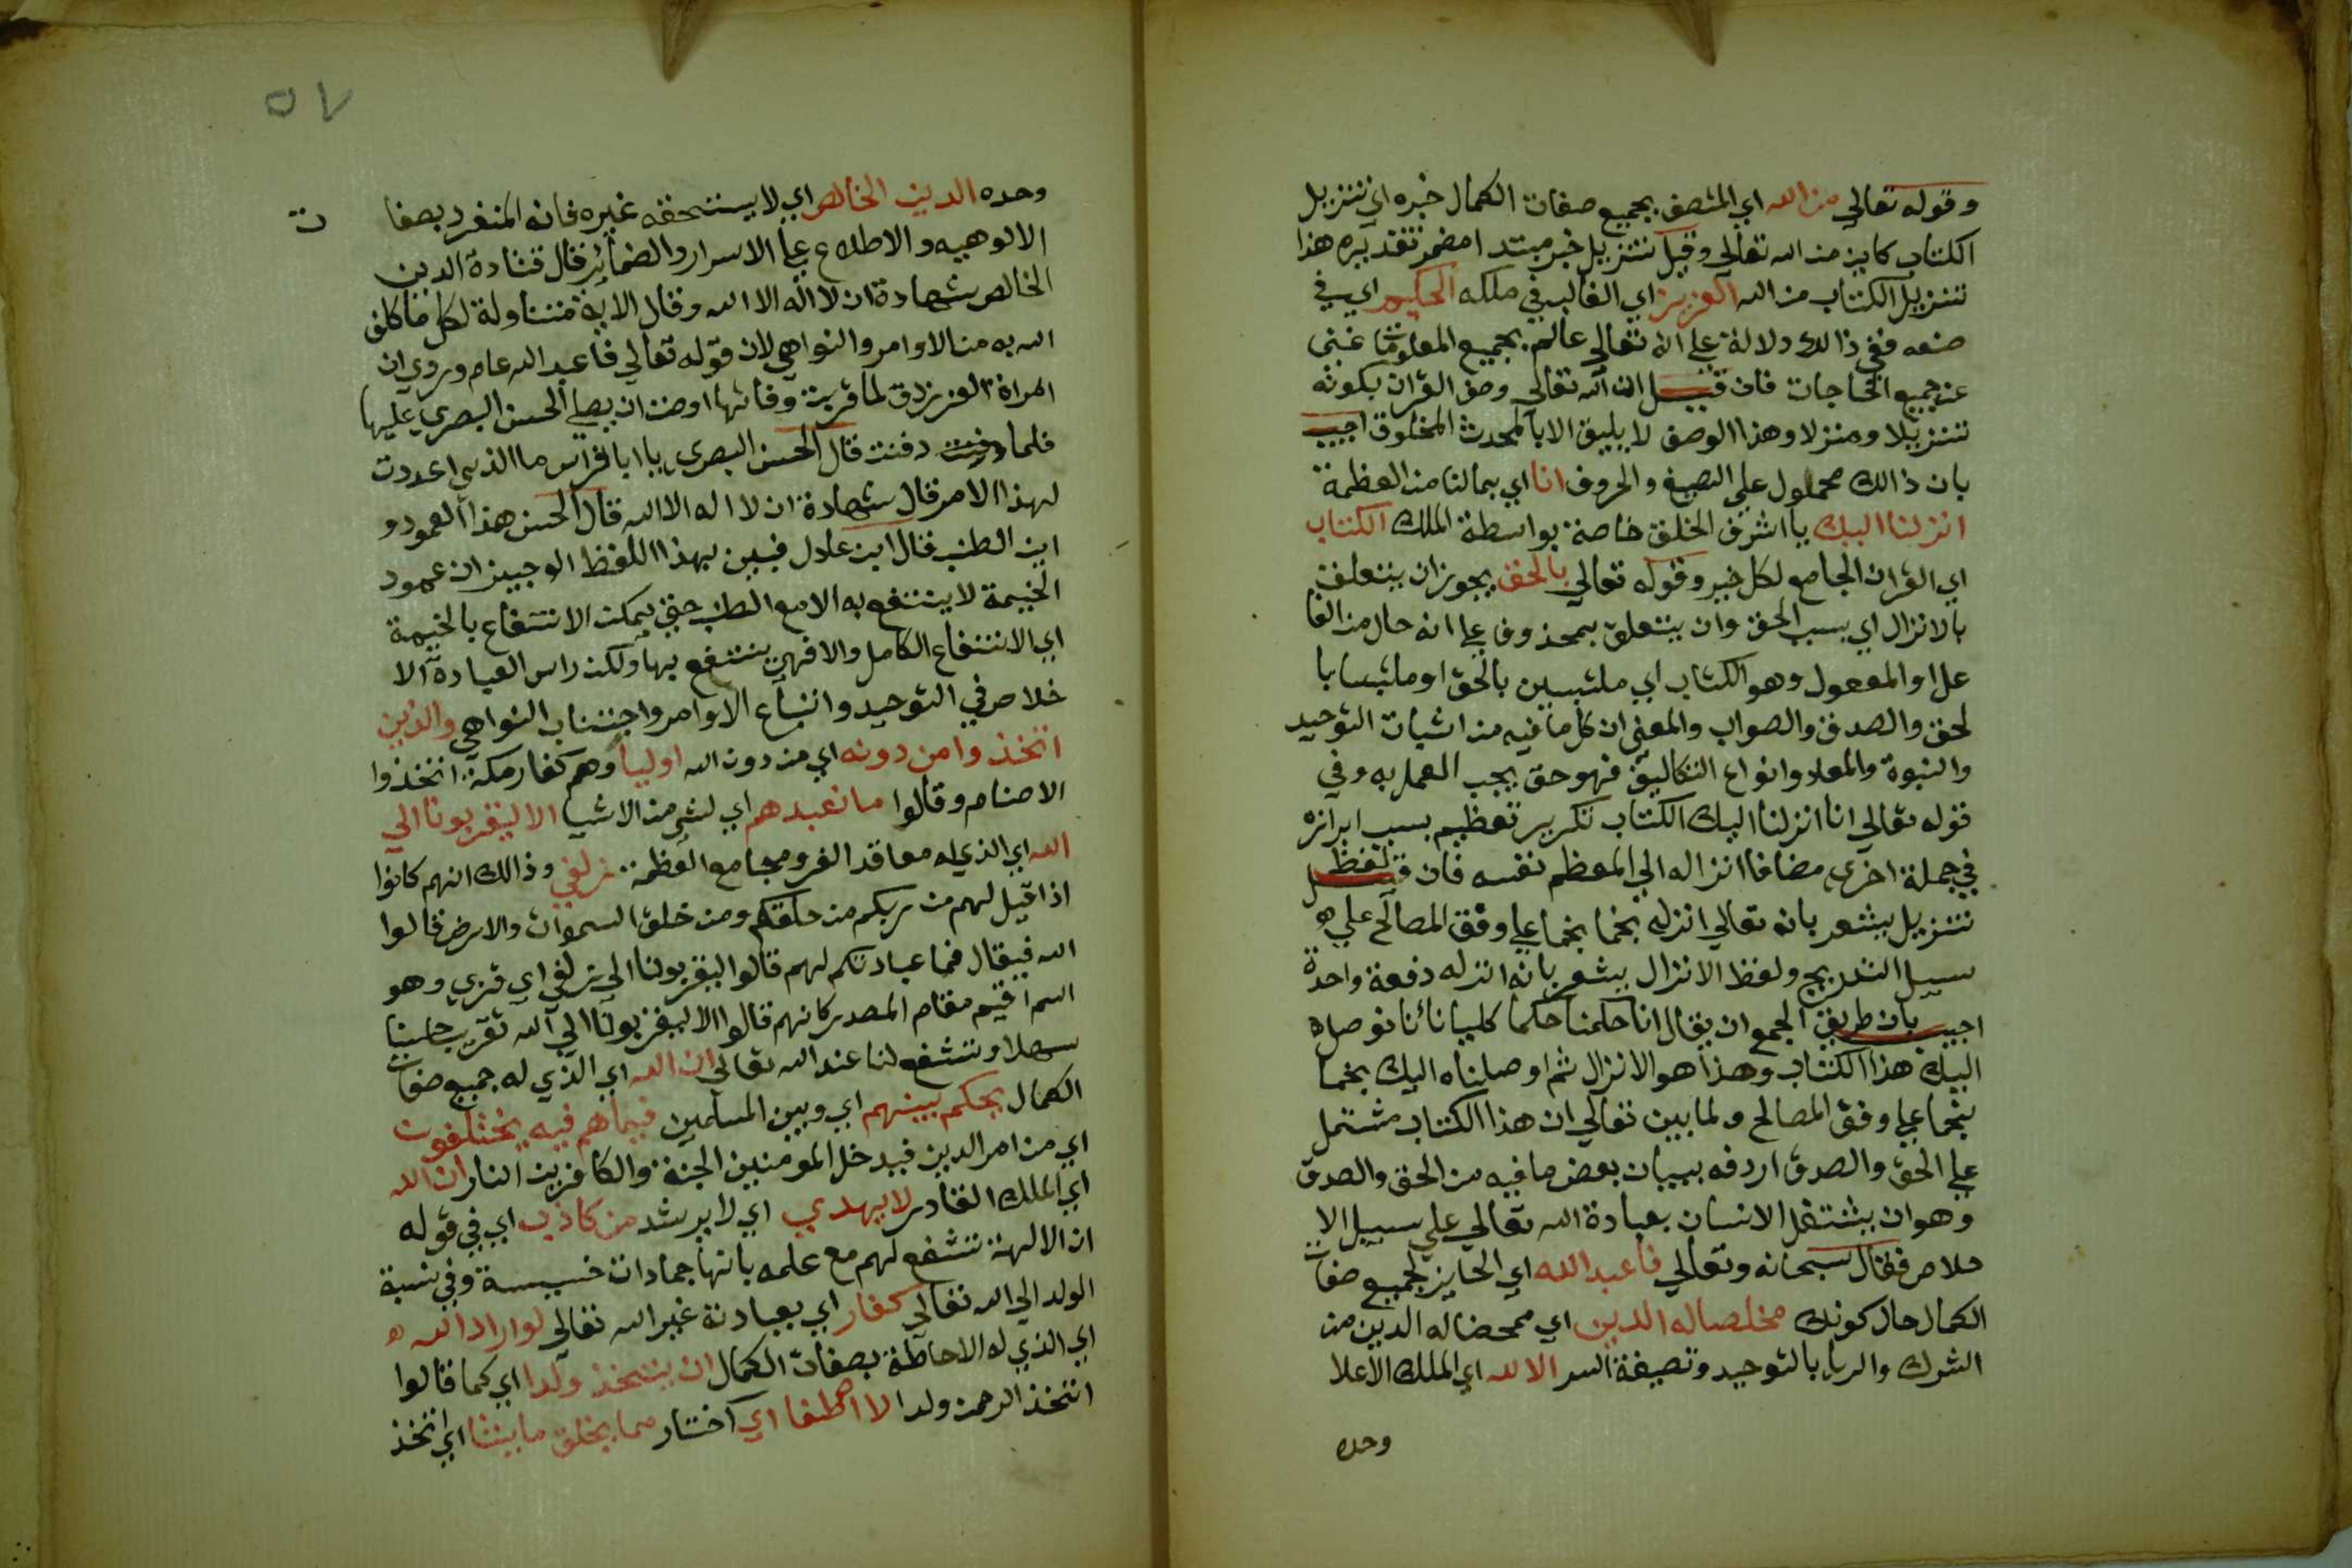 وقوله تعالي من الله اي المتصف بجميع صفات الكمال خبره اي تنزيل
الكتاب كاين من الله تعالي وقيل تنزيل خبر مبتدا مضمر تقديره هذا
تنزيل الكتاب من الله العزيز اي الغالب في ملكه الحكيم اي في
صنعه ففي ذالك دلالة علي انه تعالي عالم بجميع المعلومات غني
عن جميع الحاجات فان قيل ان الله تعالي وصف القران بكونه
تنزيلا ومنزلا وهذا الوصف لا يليق الا بالمحدث المخلوق اجيب
بان ذالك محمول علي الصيغ والحروف انا اي بمالنا من العظمة
انزلنا اليك يا اشرف الخلق خاصة بواسطة الملك الكتاب
اي القران الجامع لكل خير وقوله تعالي بالحق يجوز ان يتعلق
بالانزال اي بسبب الحق وان يتعلق بمحذوف علي انه حال من الفا
عل او المفعول وهو الكتاب اي ملتبسين بالحق او ملتبسا با
لحق والصدق والصواب والمعني ان كل ما فيه من اثبات التوحيد
والنبوة والمعاد وانواع التكاليف فهو حق يجب العمل به وفي
قوله تعالي انا انزلنا اليك الكتاب تكرير تعظيم بسبب ابرازه
في جملة اخري مضافا انزاله الي المعظم نفسه فان قيل لفظ
تنزيل يشعر بانه تعالي انزله نجما نجما علي وفق المصالح علي
سبيل التدريج ولفظ الانزال يشعر بانه انزله دفعة واحدة
اجيب بان طريق الجمع ان يقال انا حكمنا حكما كليا باننا نوصل
اليك هذا الكتاب وهذا هو الانزال ثم اوصلناه اليك نجما
نجما علي وفق المصالح ولما بين تعالي ان هذا الكتاب مشتمل
علي الحق والصدق اردفه ببيان بعض ما فيه من الحق والصدق
وهو ان يشتغل الانسان بعبادة الله تعالي علي سبيل الا
خلاص فقال سبحانه وتعالي فاعبد الله اي الحايز لجميع صفات
الكمال حال كونك مخلصا له الدين اي ممحضا له الدين من
الشرك والريا بالتوحيد وتصفية السر الا لله اي الملك الاعلا
وحده
٥٧
وحده الدين الخالص اي لا يستحقه غيره فانه المنفرد بصفا ت
الالوهيه والاطلاع علي الاسرار والضمائر قال قتادة الدين
الخالص شهادة ان لا اله الا الله وقال الاية متناولة لكل ما كلف
الله به من الاوامر والنواهي لان قوله تعالي فاعبد الله عام وروي ان
امراة الفرزدق لما قربت وفاتها اوصت ان يصلي الحسن البصري عليها
فلما دفنت قال الحسن البصري يا ابا فراس ما الذي اعددت
لهذا الامر قال شهادة ان لا اله الا الله قال الحسن هذا العمود و
اين الطنب قال ابن عادل فبين بهذا اللفظ الوجيز ان عمود
الخيمة لا ينتفع به الا مع الطنب حتي يمكن الانتفاع بالخيمة
اي الانتفاع الكامل والا فهي ينتفع بها ولكن راس العبادة الا
خلاص في التوحيد واتباع الاوامر واجتناب النواهي والذين
اتخذ وا من دونه اي من دون الله اوليا وهم كفار مكة اتخذوا
الاصنام وقالوا ما نعبدهم اي لشي من الاشيا الا ليقربونا الي
الله اي الذي له معاقد العز ومجامع العظمة زلفي وذالك انهم كانوا
اذا قيل لهم من ربكم من خلقكم ومن خلق السموات والارض قالوا
الله فيقال فما عبادتكم لهم قالوا ليقربونا الي زلفي اي قربي وهو
اسم اقيم مقام المصدر كانهم قالوا الا ليقربونا الي الله تقريبا حسنا
سهلا وتشفع لنا عند الله تعالي ان الله اي الذي له جميع صفات
الكمال يحكم بينهم اي وبين المسلمين فيما هم فيه يختلفون
اي من امر الدين فيدخل المومنين الجنة والكافرين النار ان الله
اي الملك القادر لا يهدي اي لا يرشد من كاذب اي في قوله
ان الالهة تشفع لهم مع علمه بانها جمادات خسيسة وفي نسبة
الولد الي الله تعالي كفار اي بعبادته غير الله تعالي لو اراد الله
اي الذي له الاحاطة بصفات الكمال ان يتخذ ولدا اي كما قالوا
اتخذ الرحمن ولدا لا اصطفا اي اختار مما يخلق ما يشا اي اتخذ